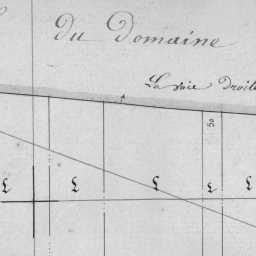 du Domaine
La voie Droite
50
L L L L L